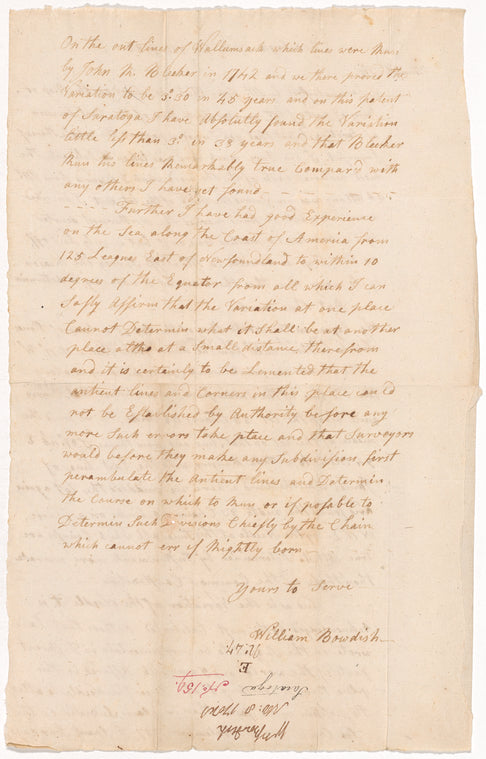 On the out lines of Wallumsack which lines were Run
by John R. Bleeker in 1742 and we there proved the
Variation to be 3°.30 in 45 years and on this patent
of Saratoga I have absolutly found the Variation
little less than 3° in 38 years and that Bleeker
Run his lines Remarkably true Compar'd with
any others I have yet found — – – –
– – – – Further I have had good Experience
on the Sea along the Coast of America from
125 Leagues East of Newfoundland to within 10
degrees of the Equator from all which I can
Safly Affirm that the Variation at one place
Cannot Determin what it Shall be at another
place altho at a Small distance therefrom
and it is certainly to be Lemented that the
antient lines and Corners in this place could
not be Established by Authority before any
more Such errors take place and that Surveyors
would before they make any Subdivision first
perambulate the Antient lines and Determin
the Course on which to Run or if posable to
Determin Such Divisions Chiefly by the Chain
which cannot err if Rightly born —
Yours to Serve
William Bowdish
No. 27.
E.
No. 159.
Saratoga
Wm Bowdish